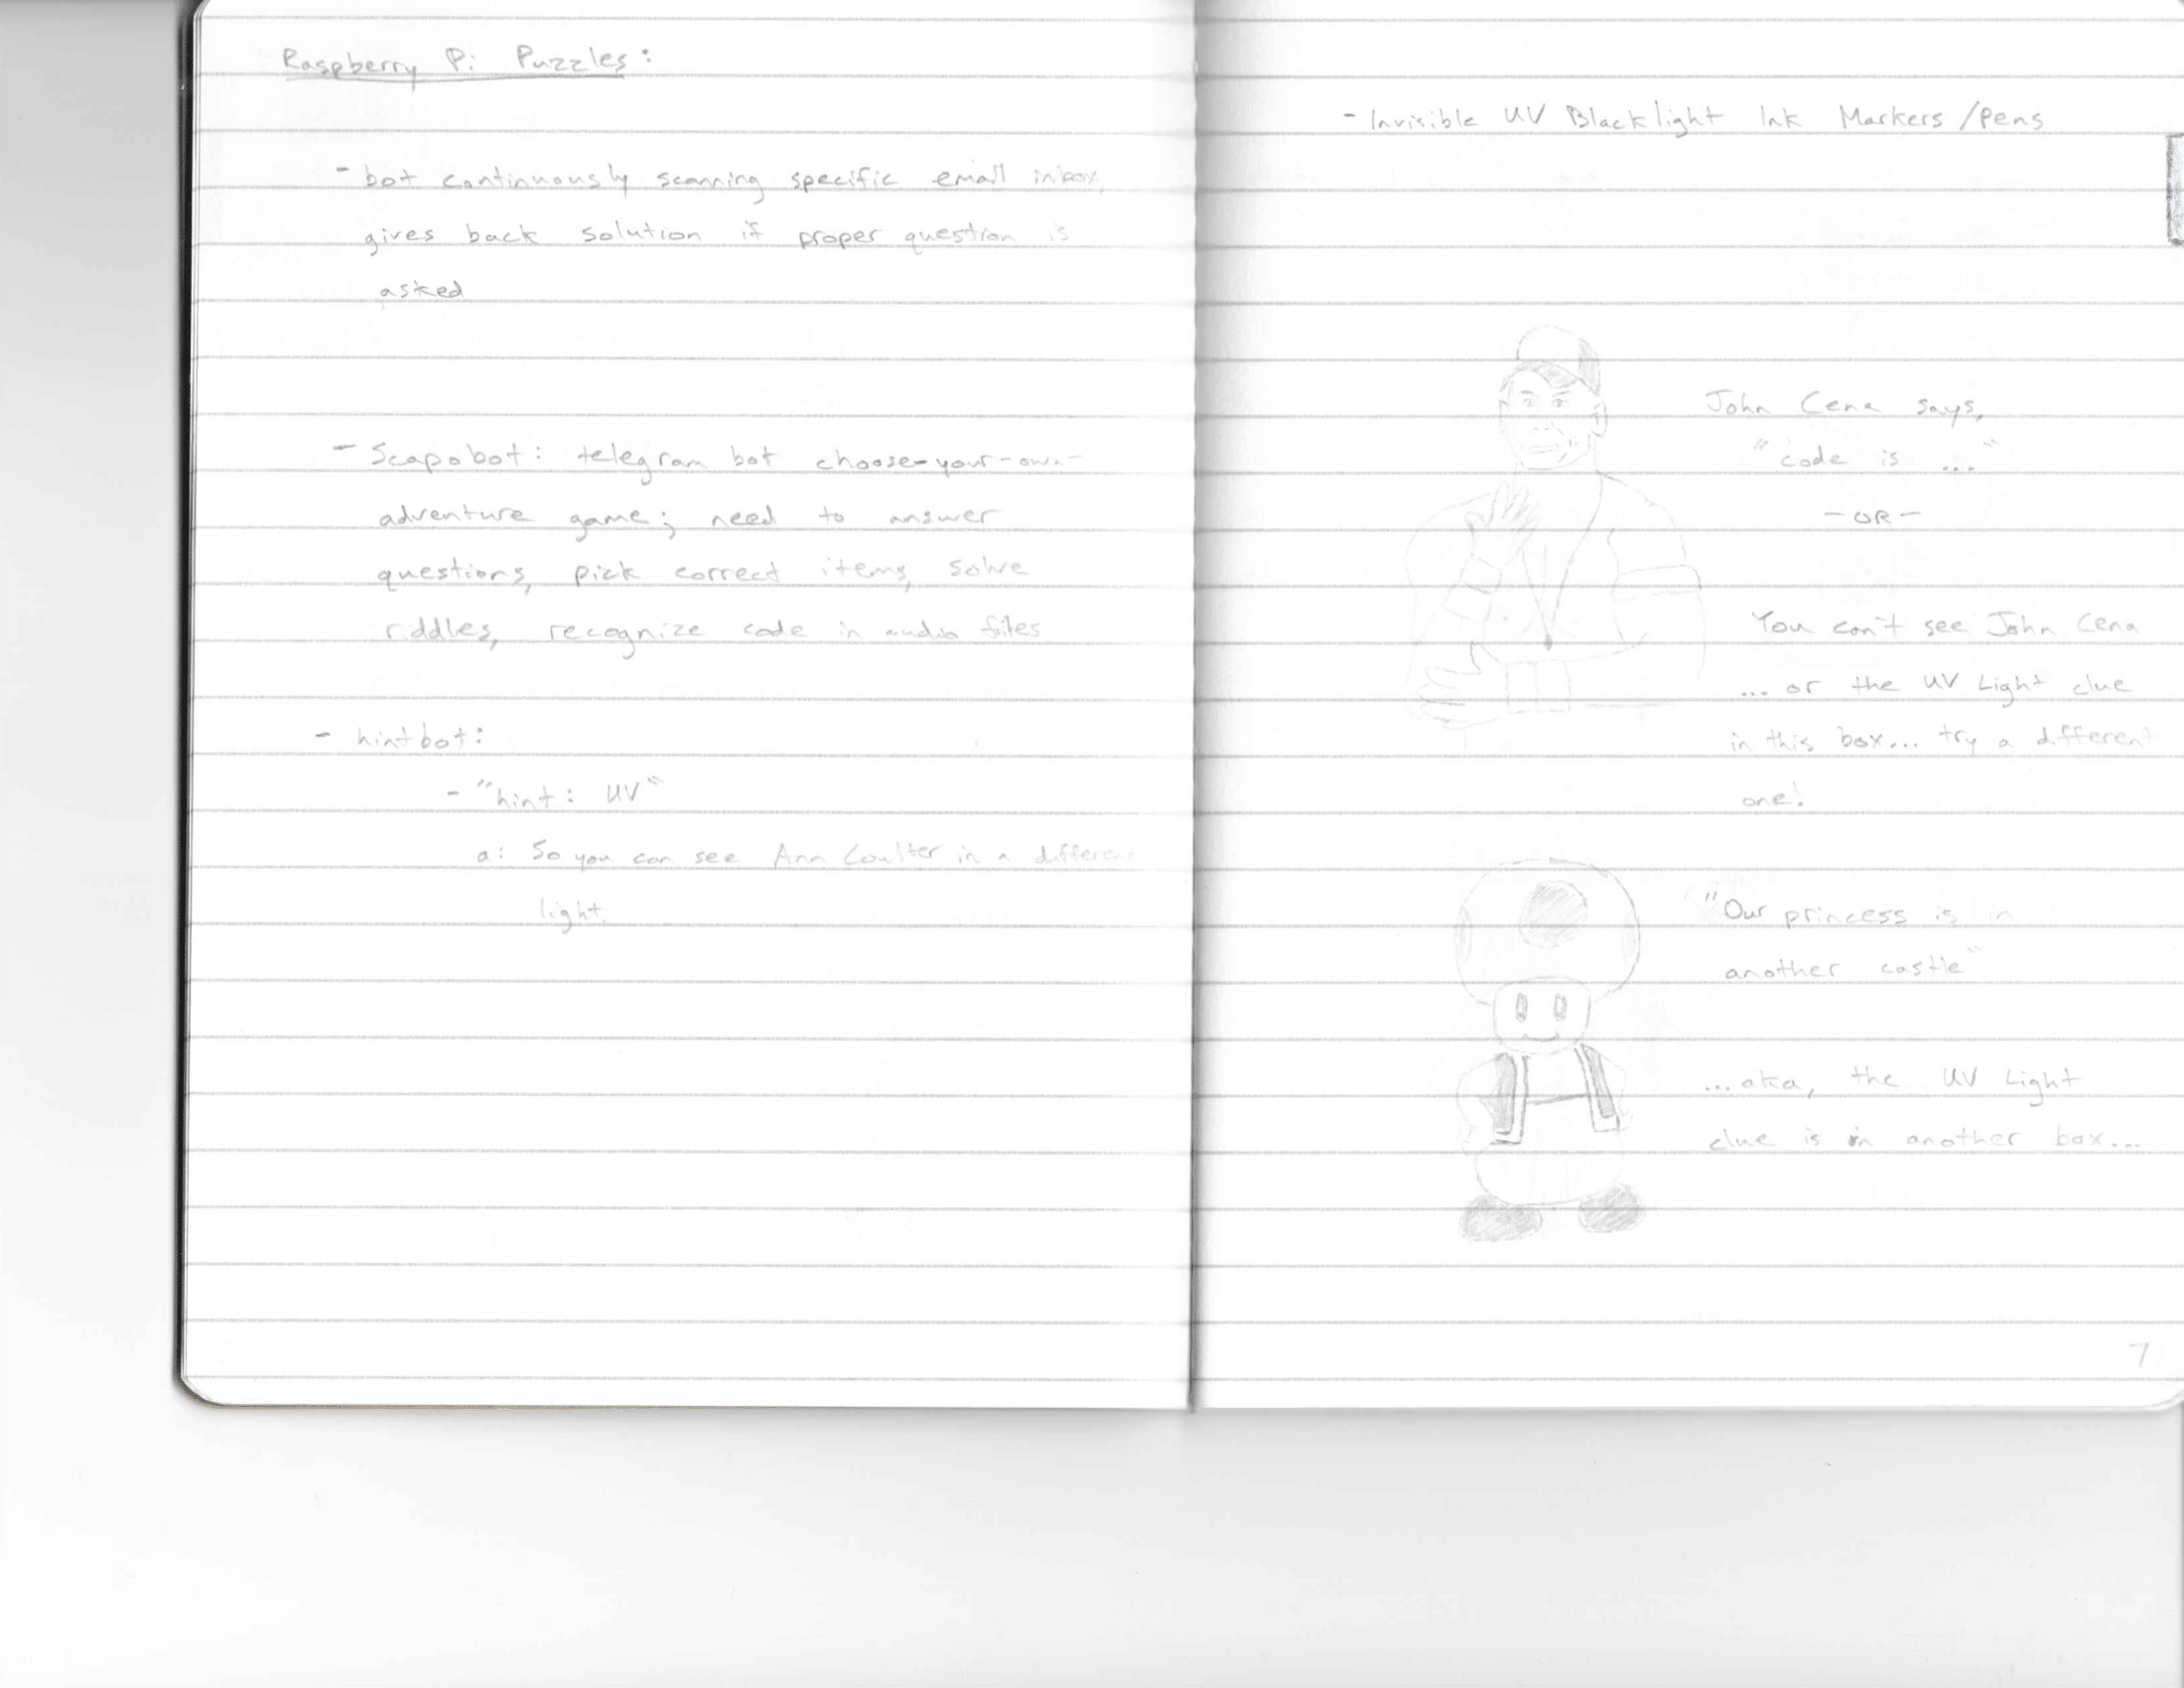 Raspberry Pi Puzzles:
- bot continuously scanning specific email inbox,
gives back solution if proper question is
asked
- Scapobot: telegram bot choose-your-own-
adventure game; need to answer
questions, pick correct items, solve
riddles, recognize code in audio files
- hintbot:
- "hint: UV"
a: So you can see Ann Coulter in a different
light.
- Invisible UV Blacklight Ink Markers/Pens
John Cena says,
"code is ..."
- OR -
You can't see John Cena
... or the UV Light clue
in this box... try a different
one!
"Our princess is in
another castle"
...aka, the UV Light
clue is in another box...
7